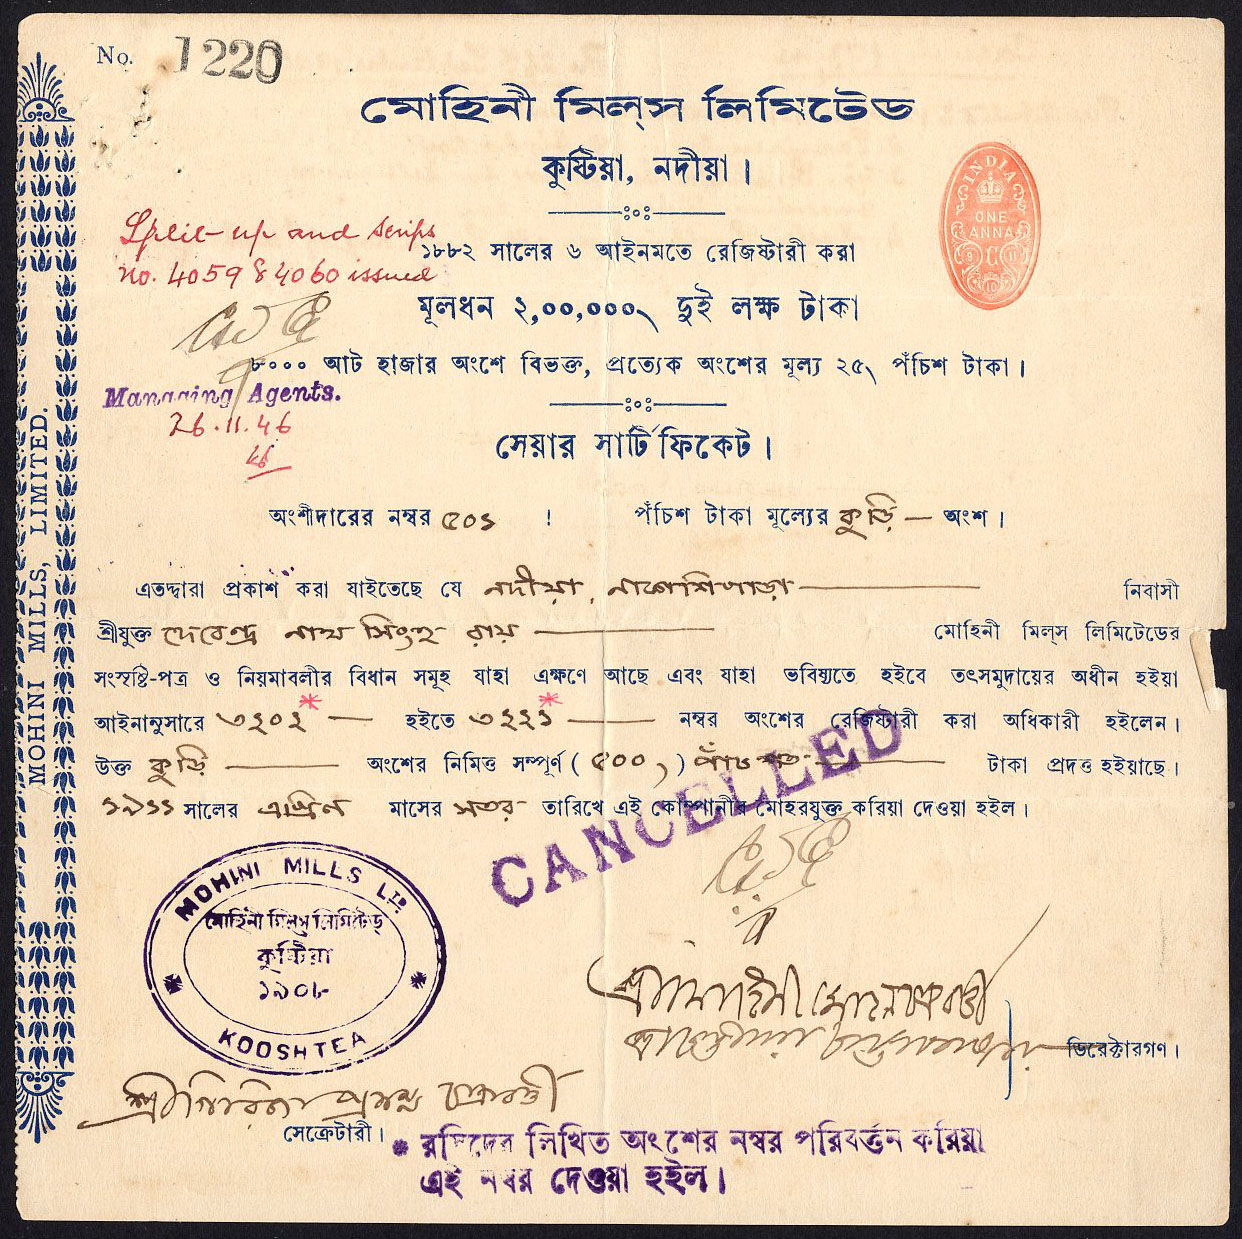 No. 1220
মোহিনী মিল্‌স লিমিটেড
কুষ্টিয়া, নদীয়া।
INDIA
ONE
ANNA
Split-up and scrips
no. 4059 & 4060 issued
১৮৮২ সালের ৬ আইনমতে রেজিষ্টারী করা
মূলধন ২,০০,০০০৲ দুই লক্ষ টাকা
৮০০০ আট হাজার অংশে বিভক্ত, প্রত্যেক অংশের মূল্য ২৫৲ পঁচিশ টাকা।
Managing Agents.
26.11.46
সেয়ার সার্টিফিকেট।
অংশীদারের নম্বর ৫০১ ! পঁচিশ টাকা মূল্যের কুড়ি — অংশ।
এতদ্দ্বারা প্রকাশ করা যাইতেছে যে নদীয়া, নাকাশিপাড়া নিবাসী
শ্রীযুক্ত দেবেন্দ্র নাথ সিংহ রায় মোহিনী মিল্‌স লিমিটেডের
সংসৃষ্টি-পত্র ও নিয়মাবলীর বিধান সমূহ যাহা এক্ষণে আছে এবং যাহা ভবিষ্যতে হইবে তৎসমুদায়ের অধীন হইয়া
আইনানুসারে ৩২০২* — হইতে ৩২২১* — নম্বর অংশের রেজিষ্টারী করা অধিকারী হইলেন।
উক্ত কুড়ি — অংশের নিমিত্ত সম্পূর্ণ (৫০০৲) পাঁচ শত — টাকা প্রদত্ত হইয়াছে।
১৯১১ সালের এপ্রিল মাসের সতর তারিখে এই কোম্পানীর মোহরযুক্ত করিয়া দেওয়া হইল।
CANCELLED
MOHINI MILLS LTD.
মোহিনী মিল্‌স লিমিটেড্
কুষ্টিয়া
১৯০৮
KOOSHTEA
ডিরেক্টারগণ।
শ্রীগিরিজা প্রসন্ন চক্রবর্ত্তী
সেক্রেটারী।
* রসিদের লিখিত অংশের নম্বর পরিবর্ত্তন করিয়া
এই নম্বর দেওয়া হইল।
MOHINI MILLS, LIMITED.